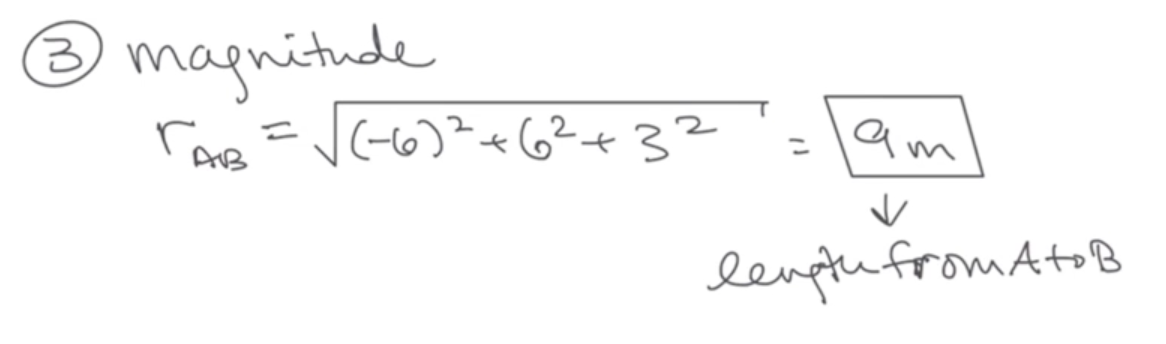 ③ magnitude
r_AB = √((-6)² + 6² + 3²) = 9m
↓
length from A to B